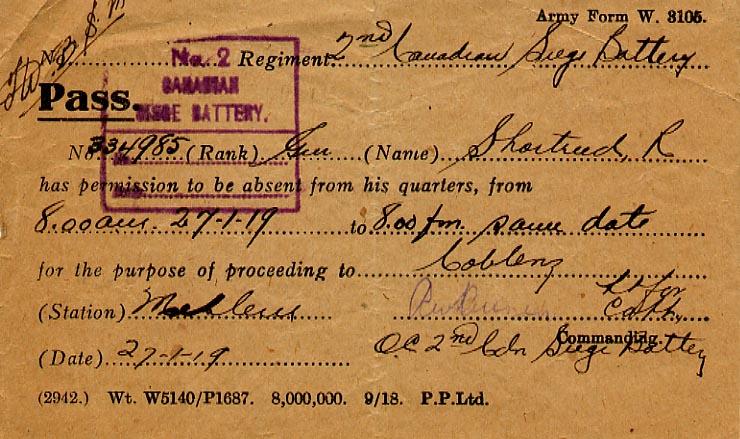 Army Form W. 3105.
No. Regiment 2nd Canadian Siege Battery
No. 2
CANADIAN
SIEGE BATTERY.
Pass.
No. 334985 (Rank) Gnr (Name) Shortreed, R
has permission to be absent from his quarters, from
8.00am 27-1-19 to 8.00 pm same date
for the purpose of proceeding to Coblenz
(Station) Lt for
(Date) 27-1-19 Commanding.
O.C. 2nd Cdn Siege Battery
(2942.) Wt. W5140/P1687. 8,000,000. 9/18. P.P.Ltd.